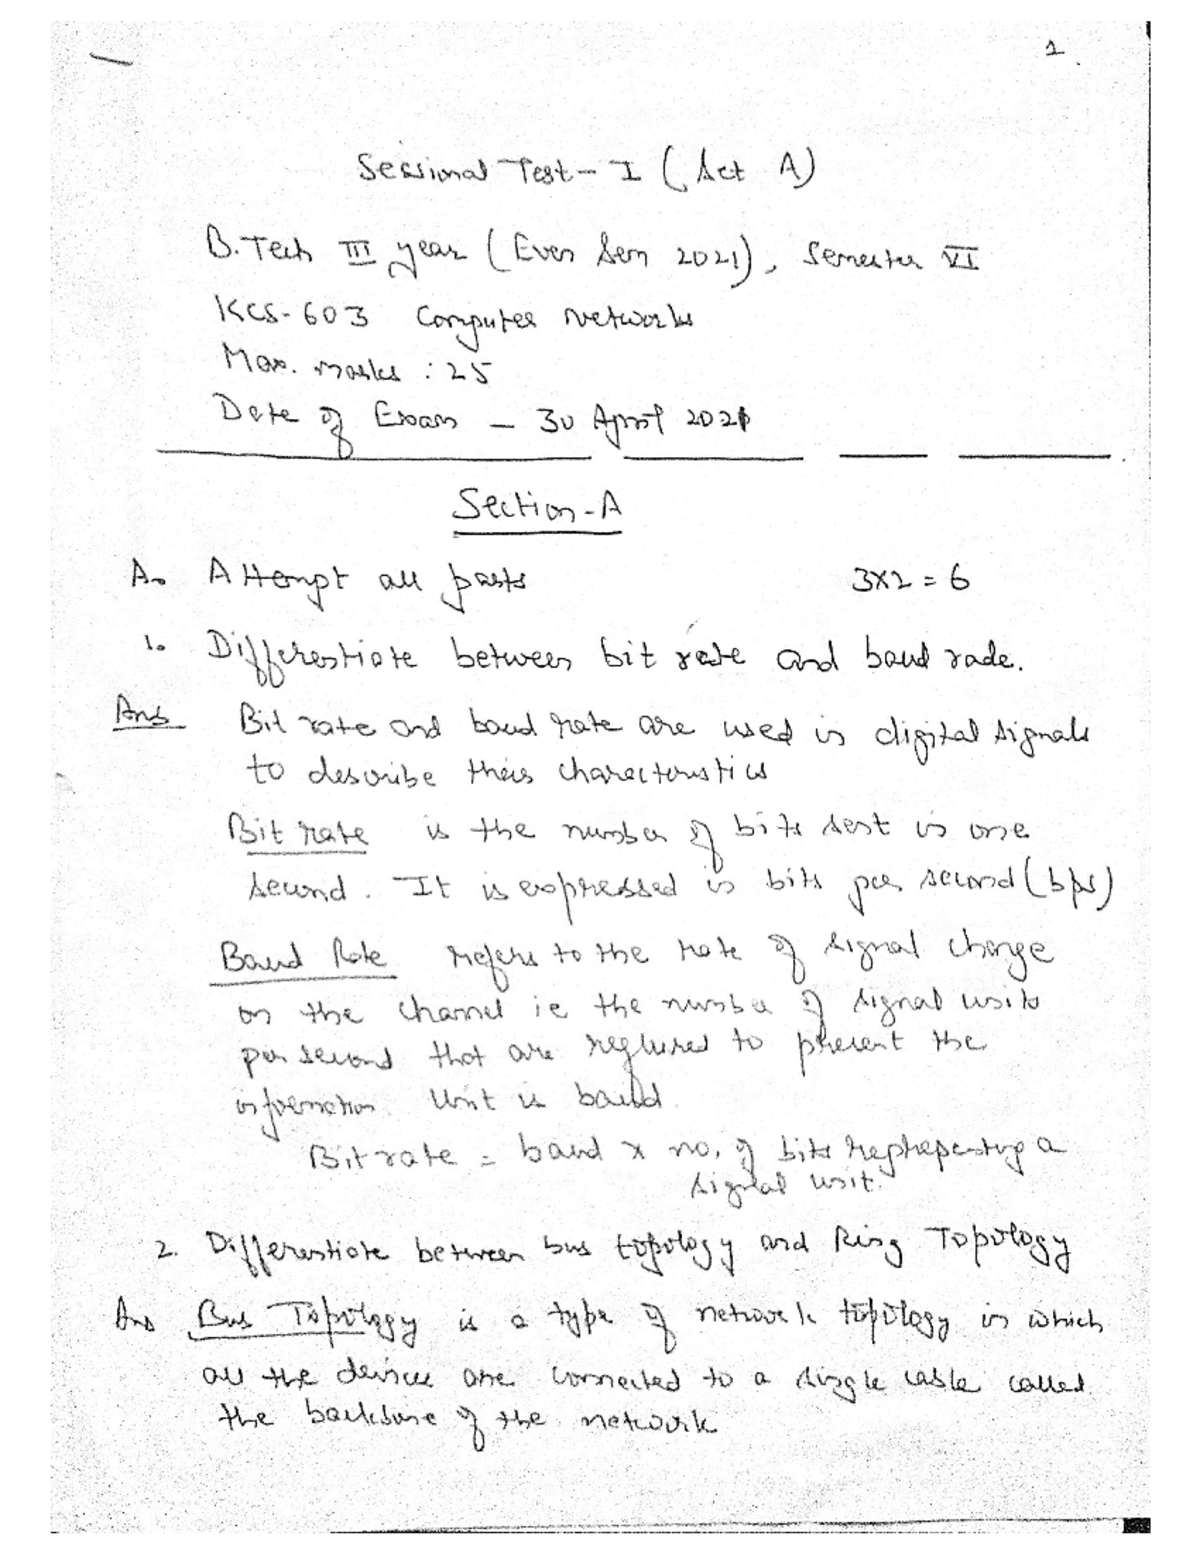 1
Sessional Test - I (Set A)
B.Tech III year (Even Sem 2021), Semester VI
KCS-603 Computer Networks
Max. marks : 25
Date of Exam - 30 April 2021
Section-A
A. Attempt all parts 3x2 = 6
1. Differentiate between bit rate and baud rade.
Ans Bit rate and baud rate are used in digital signals
to describe their charecteristics
Bit rate is the number of bits sent in one
second. It is expressed in bits per second (bps)
Baud Rate refers to the rate of signal change
on the channel ie the number of signal units
per second that are reqiured to present the
information. Unit is baud.
Bit rate = baud x no. of bits representing a
signal unit.
2. Differentiate between bus topology and Ring Topology
Ans Bus Topology is a type of network topology in which
all the devices are connected to a single cable called
the backbone of the network